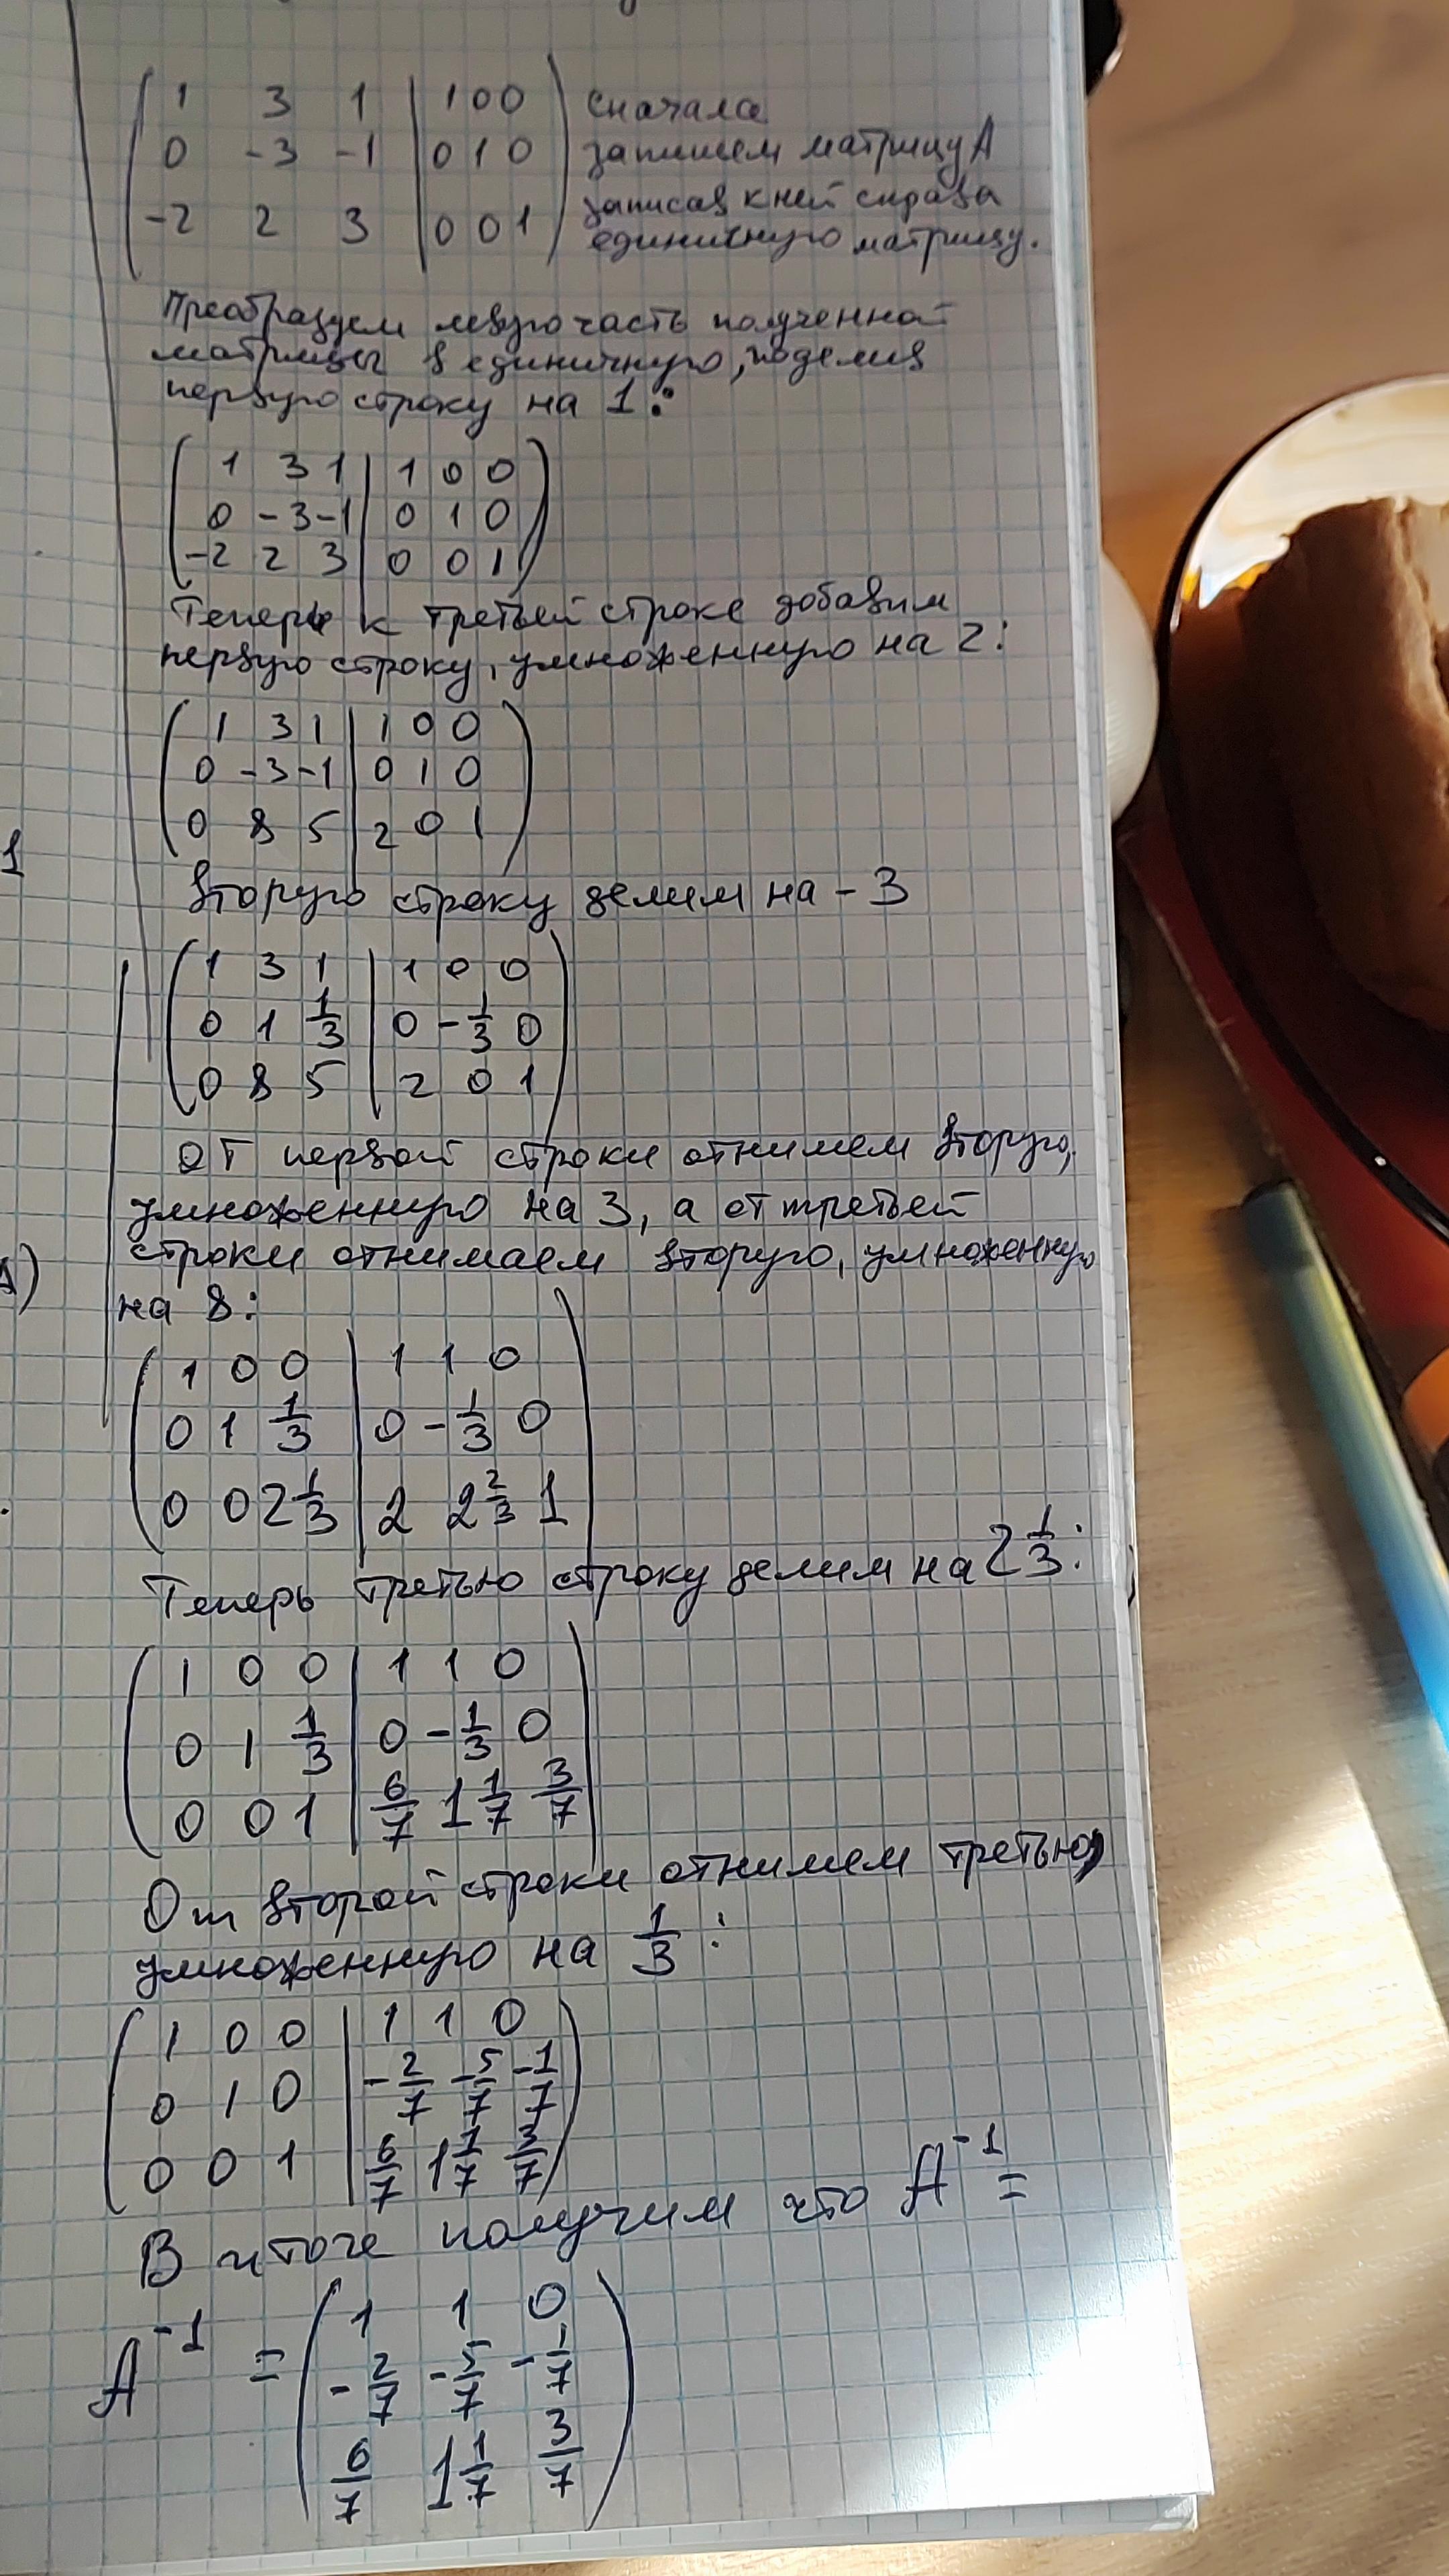 1 3 1 | 1 0 0 сначала
0 -3 -1 | 0 1 0 запишем матрицу А
-2 2 3 | 0 0 1 записав к ней справа
единичную матрицу.
Преобразуем левую часть полученной
матрицы в единичную, поделив
первую строку на 1:
1 3 1 | 1 0 0
0 -3 -1 | 0 1 0
-2 2 3 | 0 0 1
Теперь к третьей строке добавим
первую строку, умноженную на 2:
1 3 1 | 1 0 0
0 -3 -1 | 0 1 0
0 8 5 | 2 0 1
1
Вторую строку делим на -3
1 3 1 | 1 0 0
0 1 1/3 | 0 -1/3 0
0 8 5 | 2 0 1
от первой строки отнимем вторую,
умноженную на 3, а от третьей
строки отнимаем вторую, умноженную
на 8:
1 0 0 | 1 1 0
0 1 1/3 | 0 -1/3 0
0 0 2 1/3 | 2 2 2/3 1
Теперь третью строку делим на 2 1/3:
1 0 0 | 1 1 0
0 1 1/3 | 0 -1/3 0
0 0 1 | 6/7 1 1/7 3/7
От второй строки отнимем третью,
умноженную на 1/3:
1 0 0 | 1 1 0
0 1 0 | -2/7 -5/7 -1/7
0 0 1 | 6/7 1 1/7 3/7
В итоге получим что A^-1 =
A^-1 = ( 1 1 0
-2/7 -5/7 -1/7
6/7 1 1/7 3/7 )